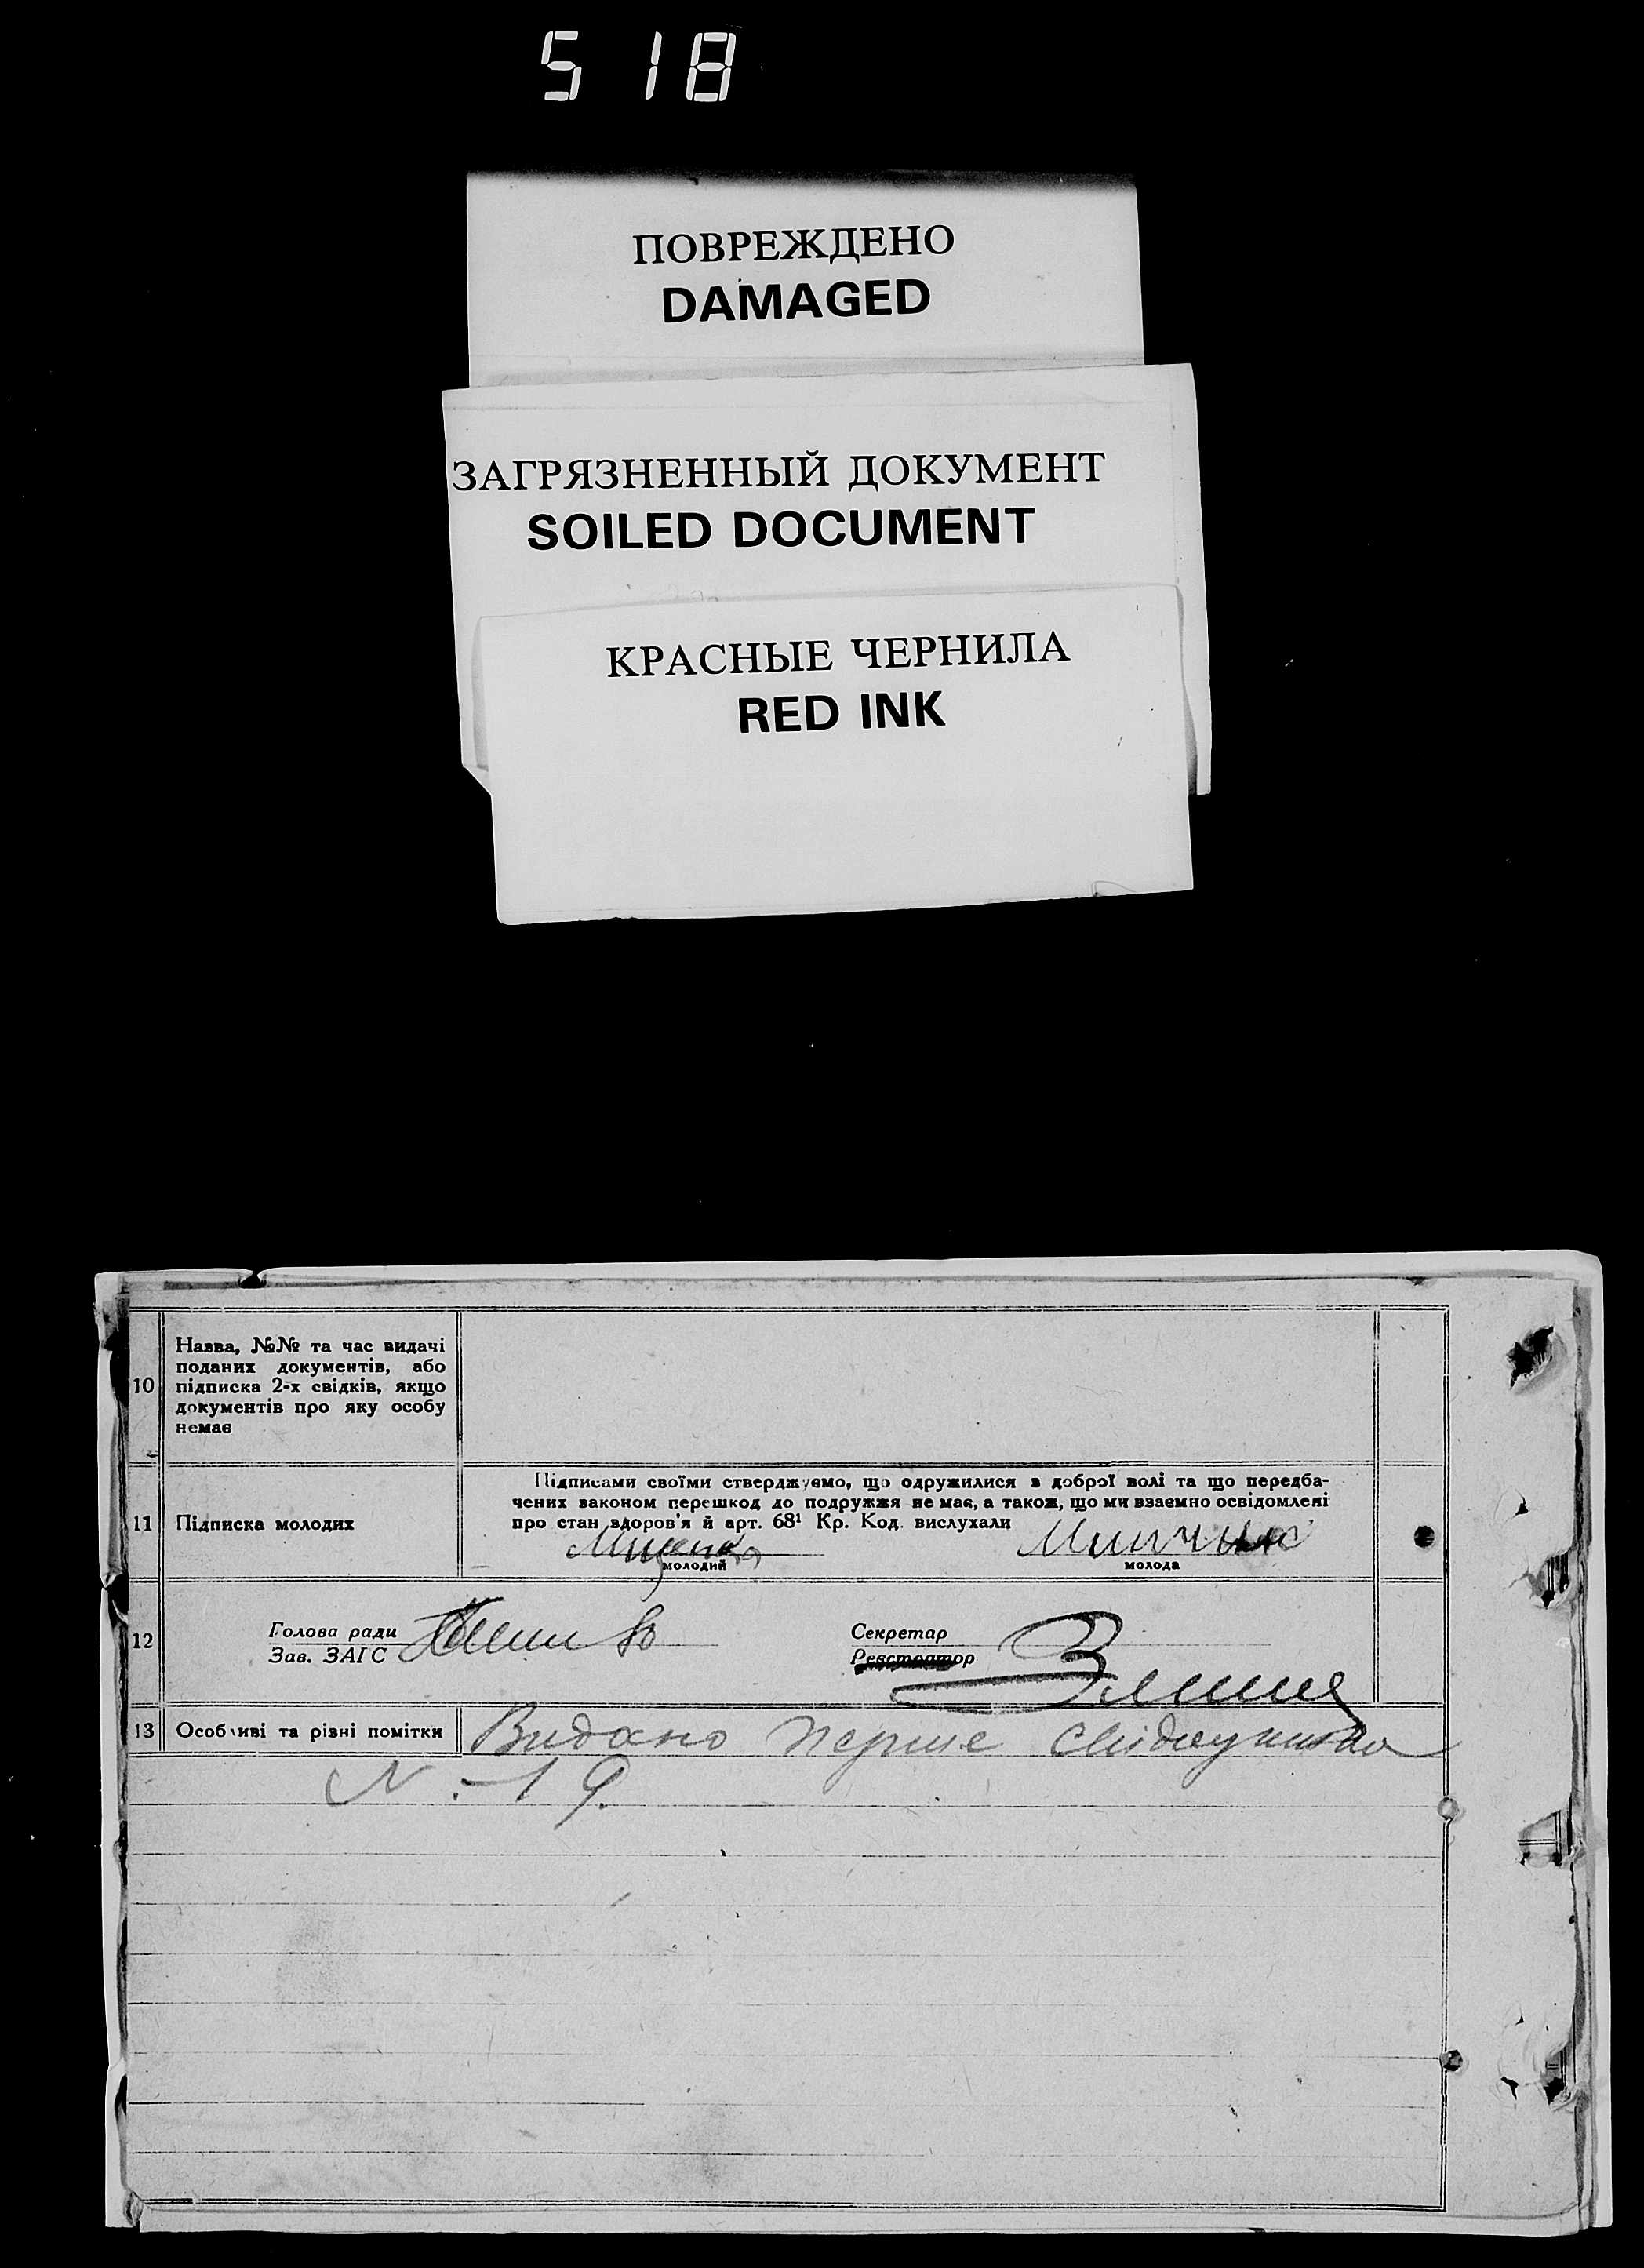 518
ПОВРЕЖДЕНО
DAMAGED
ЗАГРЯЗНЕННЫЙ ДОКУМЕНТ
SOILED DOCUMENT
КРАСНЫЕ ЧЕРНИЛА
RED INK
10
Назва, №№ та час видачі
поданих документів, або
підписка 2-х свідків, якщо
документів про яку особу
немає
11
Підписка молодих
Підписами своїми стверджуємо, що одружилися з доброї волі та що передба-
чених законом перешкод до подружжя не має, а також, що ми взаємно освідомлені
про стан здоров'я й арт. 68¹ Кр. Код. вислухали
молодий
молода
12
Голова ради
Зав. ЗАГС
Секретар
Реєстратор
13 Особливі та різні помітки Видано перше
N - 19.